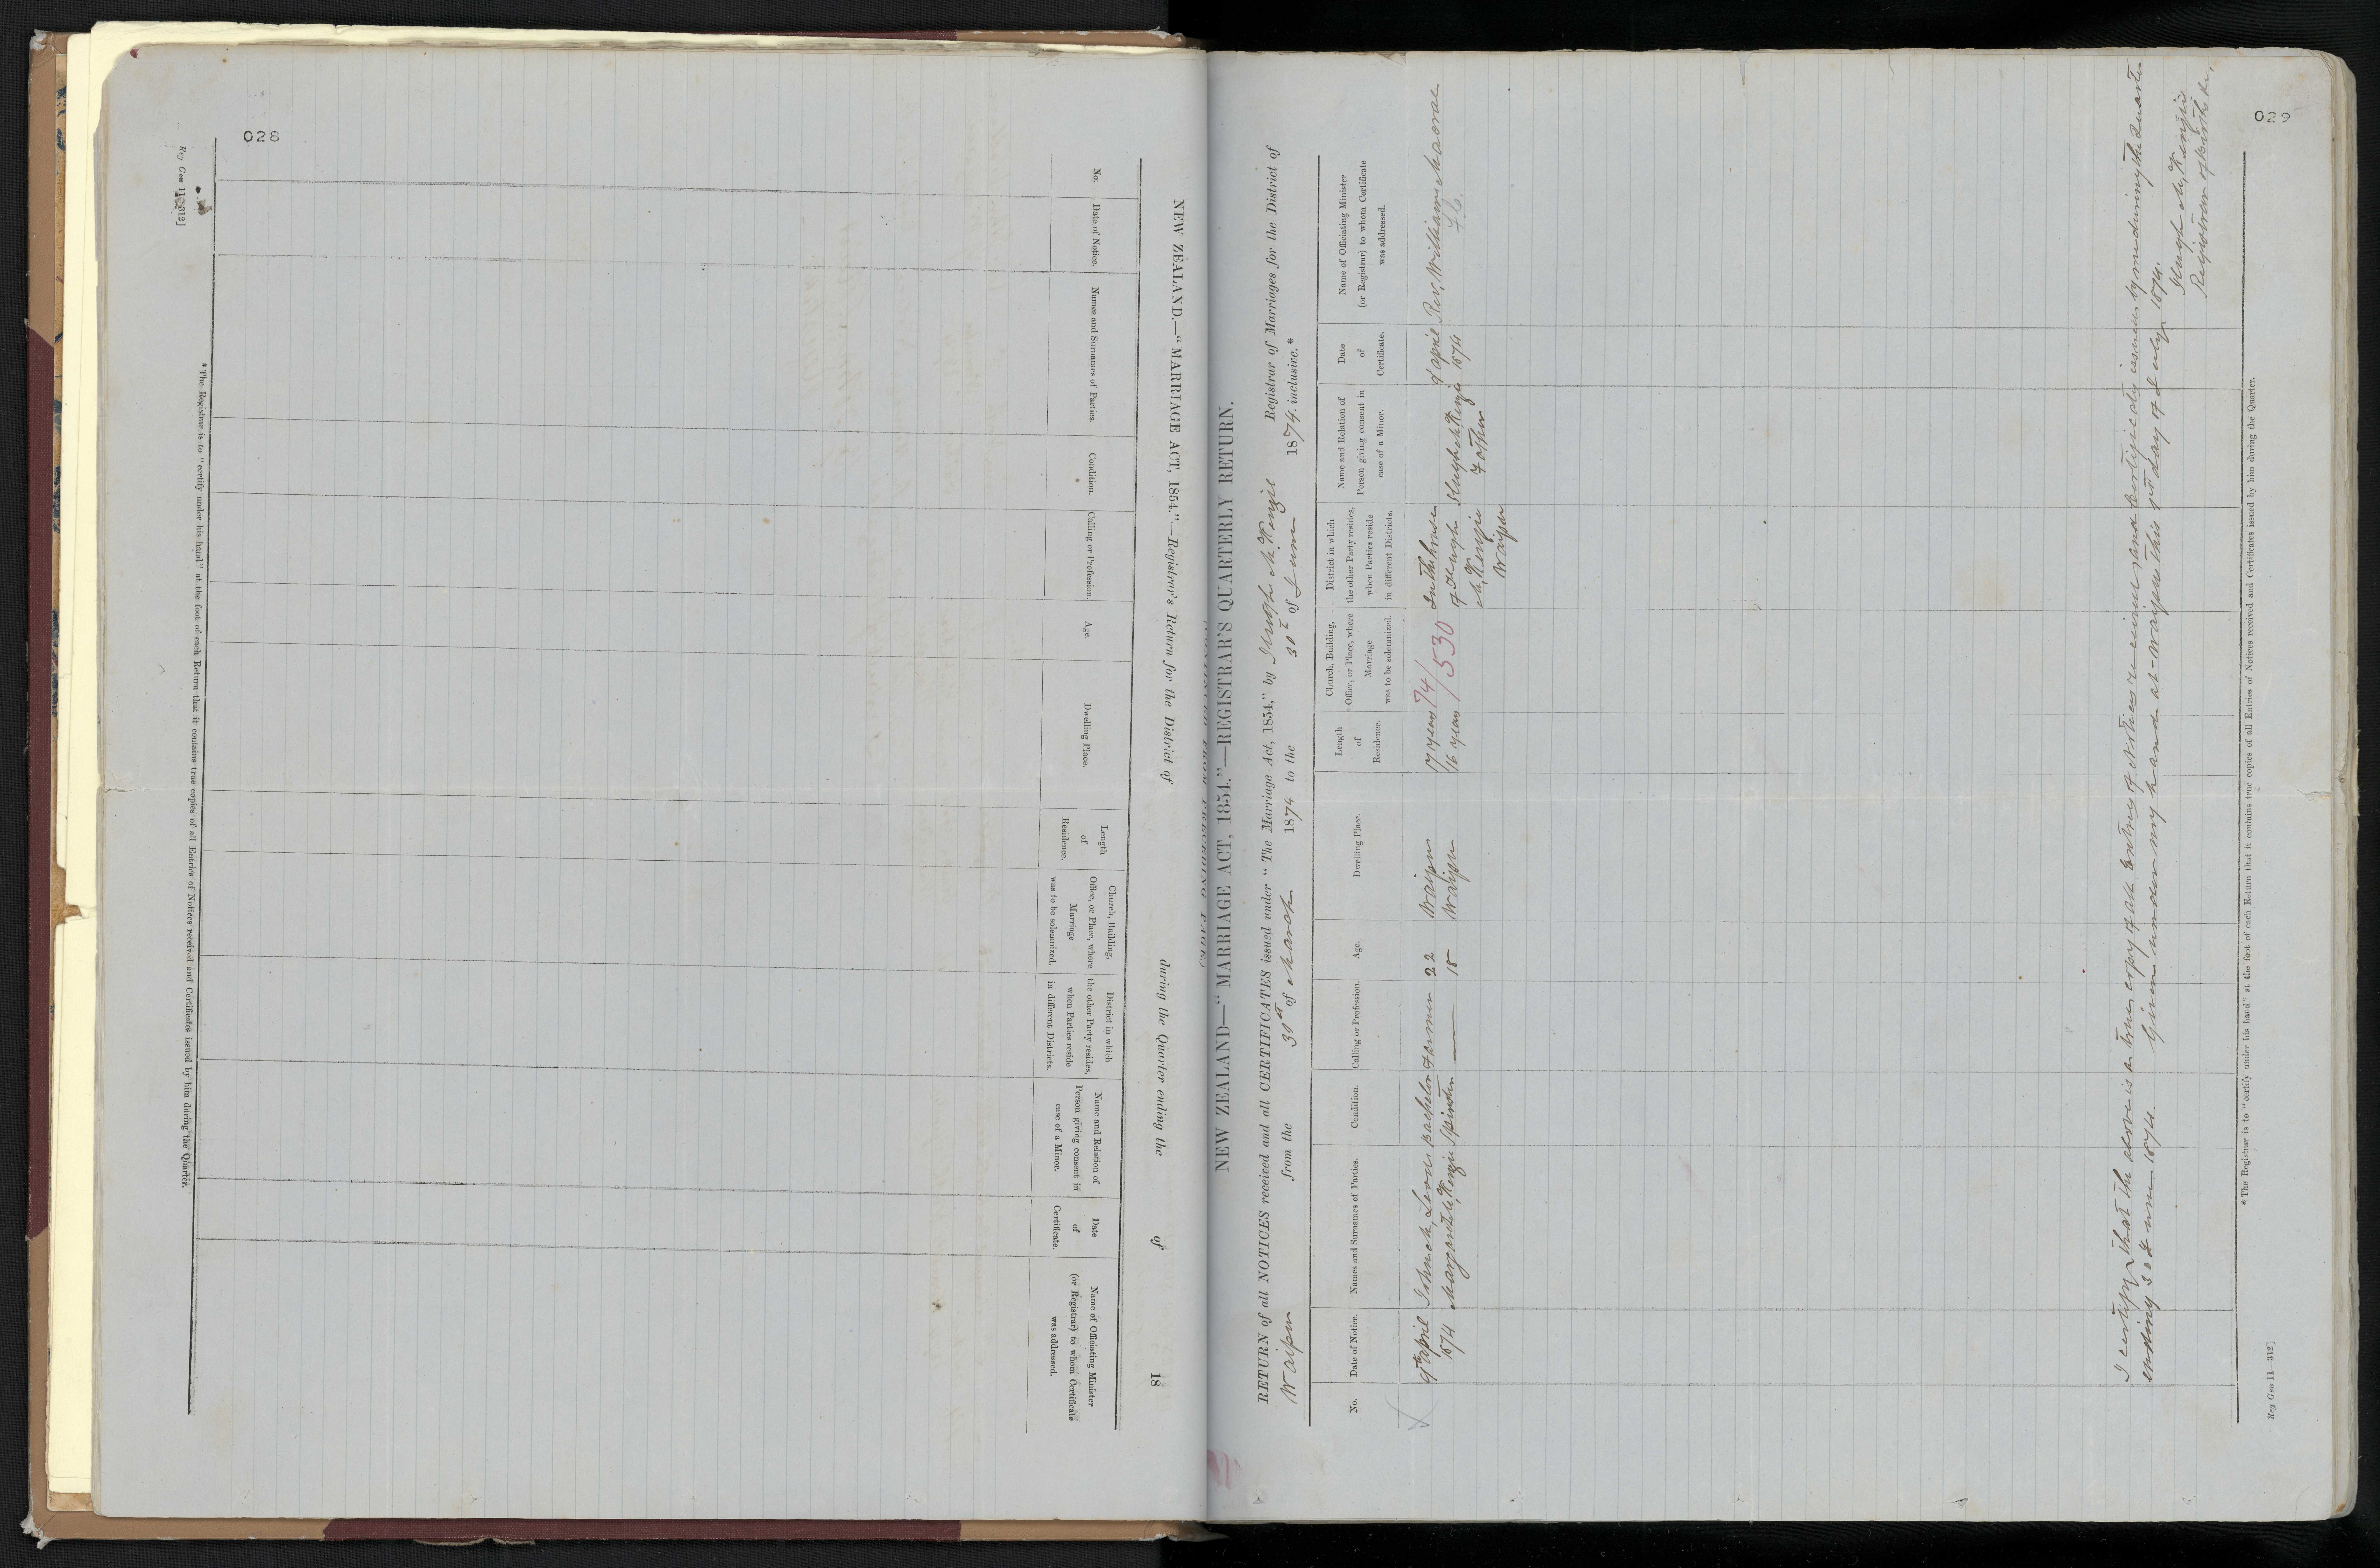 028
NEW ZEALAND.—“MARRIAGE ACT, 1854.”—Registrar's Return for the District of during the Quarter ending the of 18
No.
Date of Notice.
Names and Surnames of Parties.
Condition.
Calling or Profession.
Age.
Dwelling Place.
Length
of
Residence.
Church, Building,
Office, or Place, where
Marriage
was to be solemnized.
District in which
the other Party resides,
when Parties reside
in different Districts.
Name and Relation of
Person giving consent in
case of a Minor.
Date
of
Certificate.
Name of Officiating Minister
(or Registrar) to whom Certificate
was addressed.
* The Registrar is to “certify under his hand” at the foot of each Return that it contains true copies of all Entries of Notices received and Certificates issued by him during the Quarter.
Reg Gen 11—312]
029
NEW ZEALAND—“MARRIAGE ACT, 1854.”—REGISTRAR'S QUARTERLY RETURN.
RETURN of all NOTICES received and all CERTIFICATES issued under “The Marriage Act, 1854,” by Hugh McKenzie Registrar of Marriages for the District of
Waipu from the 31st of March 1874 to the 30th of June 1874. inclusive.*
No.
Date of Notice.
Names and Surnames of Parties.
Condition.
Calling or Profession.
Age.
Dwelling Place.
Length
of
Residence.
Church, Building,
Office, or Place, where
Marriage
was to be solemnized.
District in which
the other Party resides,
when Parties reside
in different Districts.
Name and Relation of
Person giving consent in
case of a Minor.
Date
of
Certificate.
Name of Officiating Minister
(or Registrar) to whom Certificate
was addressed.
9th April
1874
Bachelor
Spinster
Margaret McKenzie
Farmer
22
18
Waipu
Waipu
17 years
16 years
74/530
In the house
of Hugh
McKenzie
Waipu
Hugh McKenzie
Father
9 April
1874
Rev. William McCrae
I certify that the above is a true copy of all Entries of Notices received and Certificates issued by me during the Quarter
ending 30th June 1874. Given under my hand at Waipu this 1st day of July 1874.
Hugh McKenzie
Registrar
* The Registrar is to “certify under his hand” at the foot of each Return that it contains true copies of all Entries of Notices received and Certificates issued by him during the Quarter.
Reg Gen 11—312]